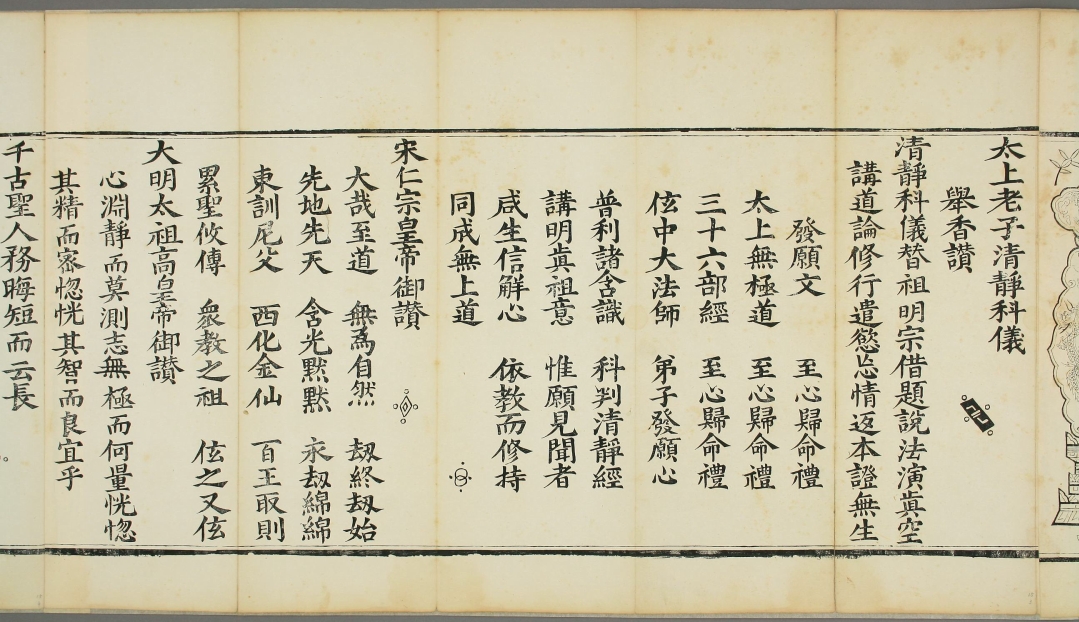 太上老子清靜科儀
舉香讃
清靜科儀替祖明宗借題說法演眞空
講道論修行遣慾忘情返本證無生
發願文　至心歸命禮
太上無極道　至心歸命禮
三十六部經　至心歸命禮
伭中大法師　弟子發願心
普利諸含識　科判清靜經
講明眞祖意　惟願見聞者
咸生信解心　依教而修持
同成無上道
宋仁宗皇帝御讃
大哉至道　無為自然　劫終劫始
先地先天　含光黙黙　永劫綿綿
東訓尼父　西化金仙　百王取則
累聖攸傳　衆教之祖　伭之又伭
大明太祖高皇帝御讃
心淵靜而莫測志無極而何量恍惚
其精而密惚恍其智而良宜乎
千古聖人務晦短而云長